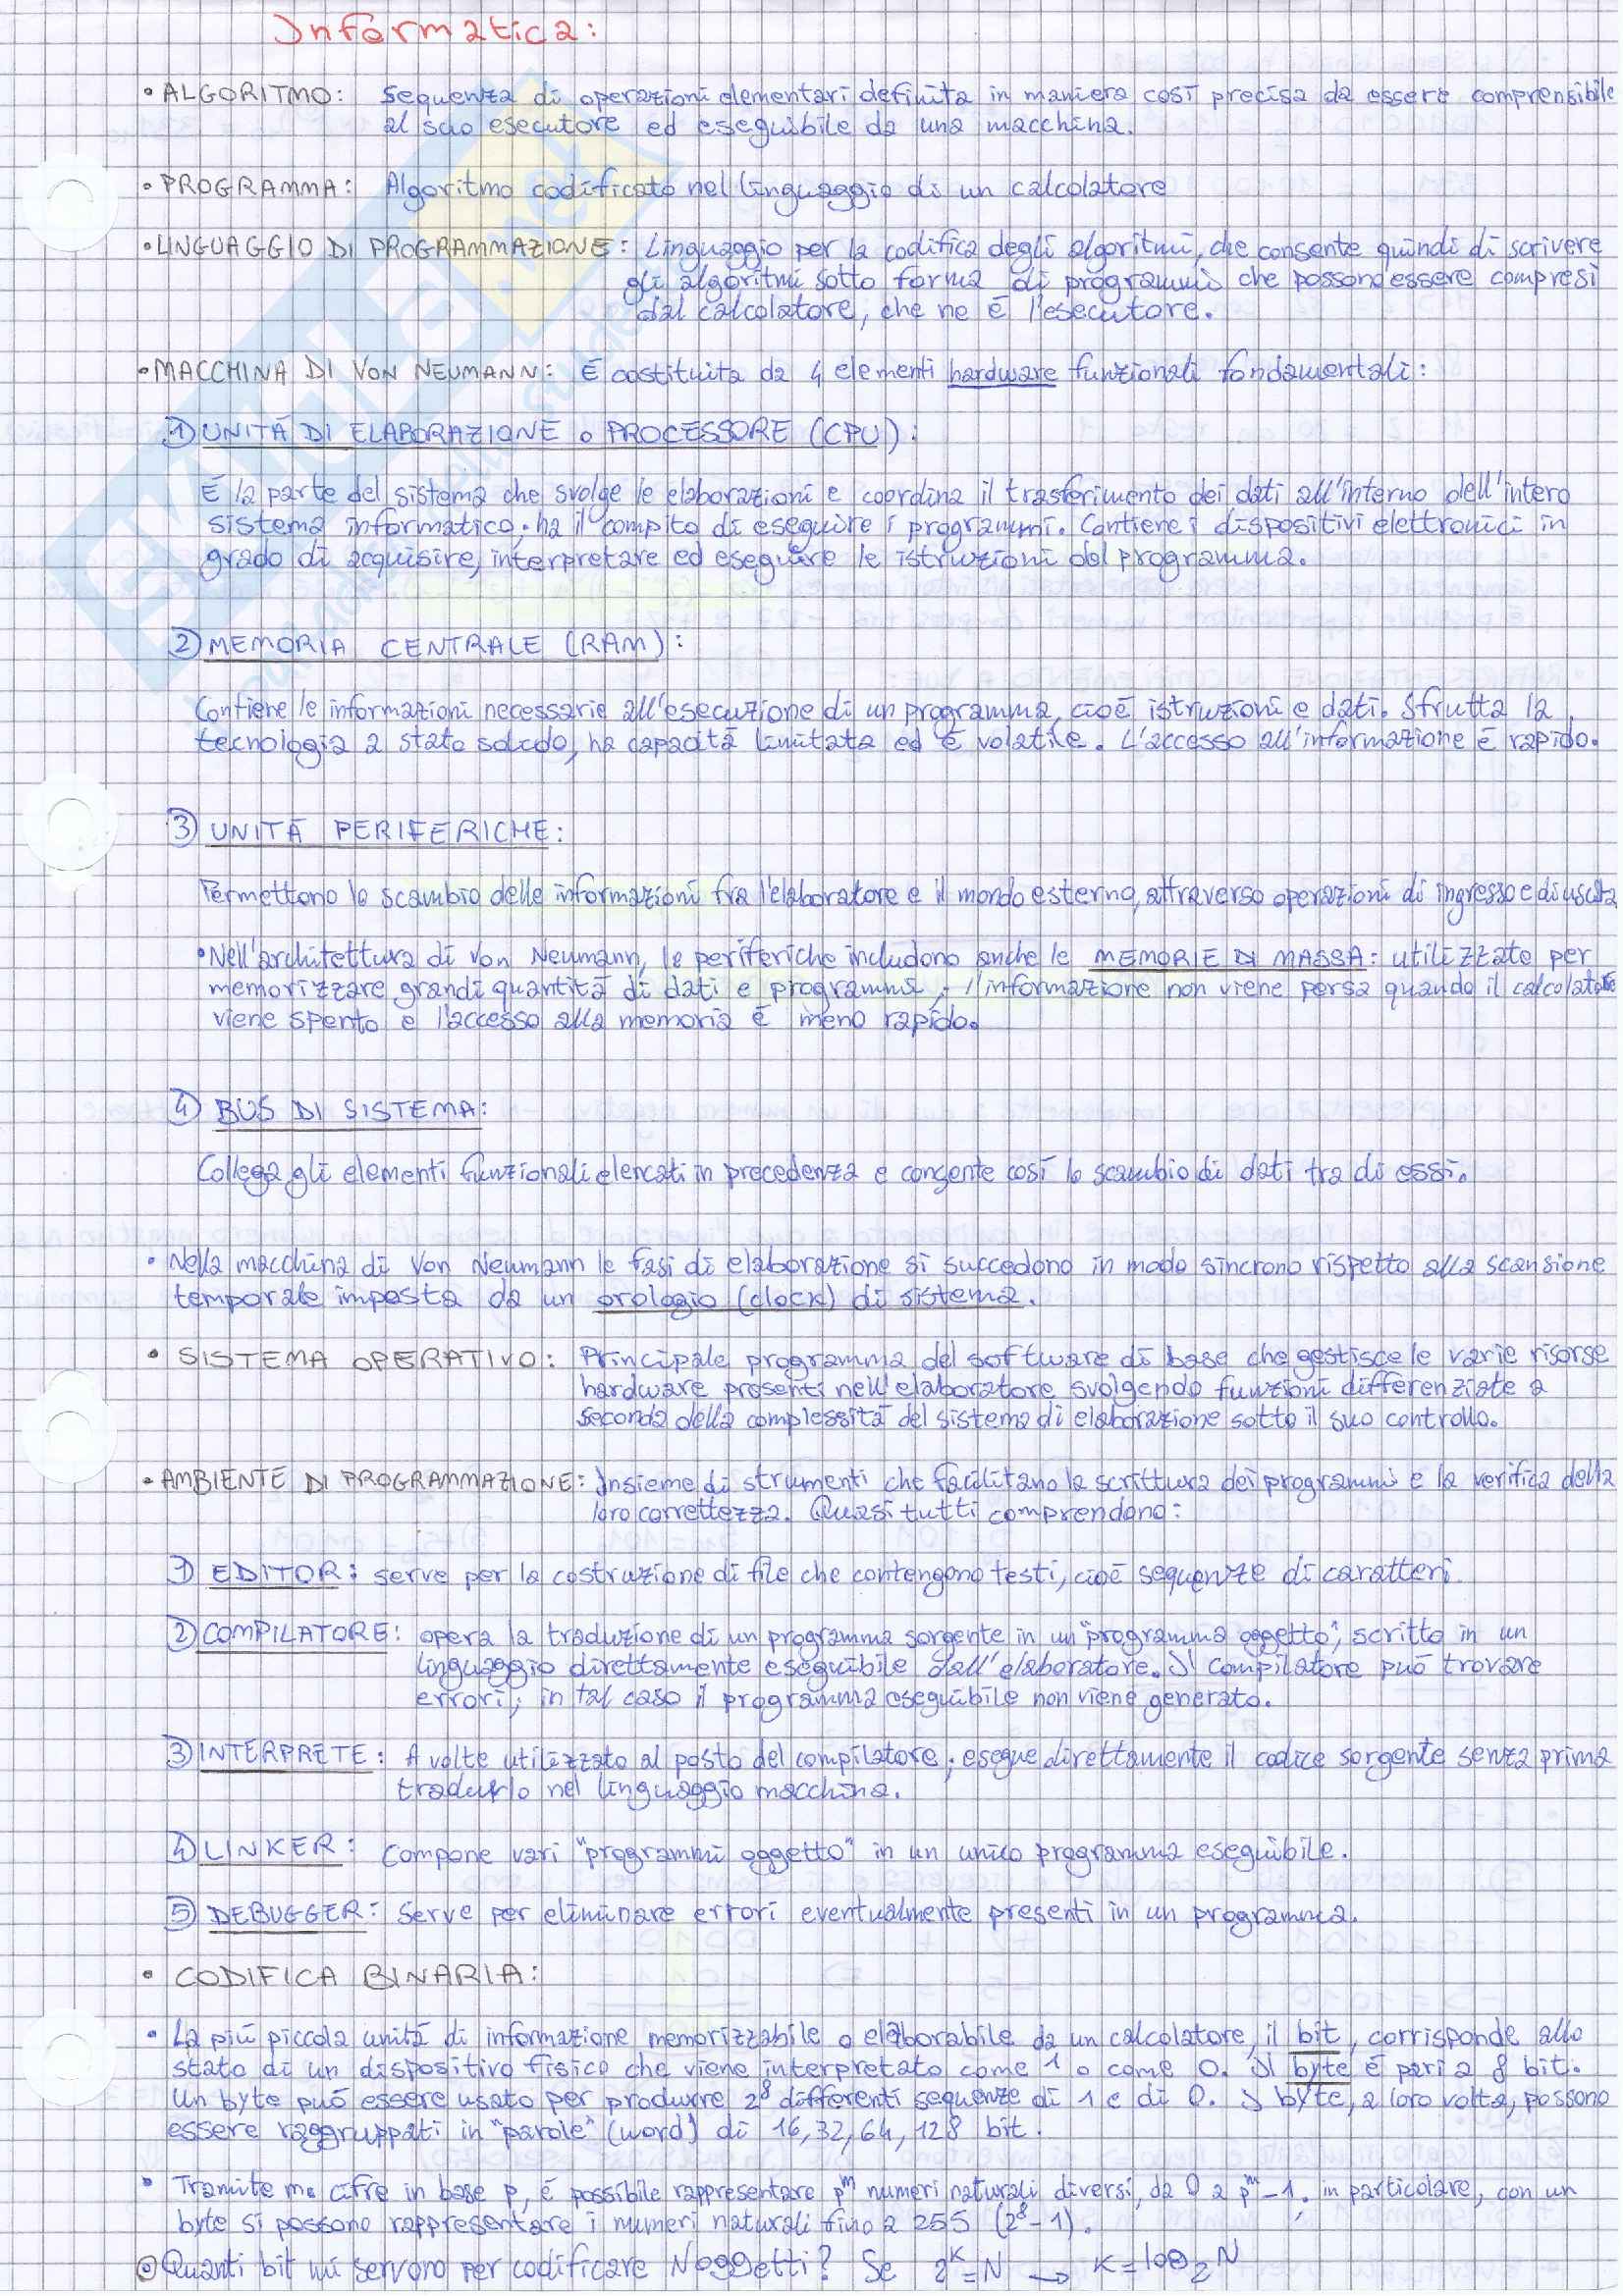 Informatica:
• ALGORITMO: Sequenza di operazioni elementari definita in maniera così precisa da essere comprensibile
al suo esecutore ed eseguibile da una macchina.
• PROGRAMMA: Algoritmo codificato nel linguaggio di un calcolatore
• LINGUAGGIO DI PROGRAMMAZIONE: Linguaggio per la codifica degli algoritmi, che consente quindi di scrivere
gli algoritmi sotto forma di programmi che possono essere compresi
dal calcolatore, che ne è l'esecutore.
• MACCHINA DI VON NEUMANN: È costituita da 4 elementi hardware funzionali fondamentali:
1) UNITÀ DI ELABORAZIONE o PROCESSORE (CPU):
È la parte del sistema che svolge le elaborazioni e coordina il trasferimento dei dati all'interno dell'intero
sistema informatico; ha il compito di eseguire i programmi. Contiene i dispositivi elettronici in
grado di acquisire, interpretare ed eseguire le istruzioni del programma.
2) MEMORIA CENTRALE (RAM):
Contiene le informazioni necessarie all'esecuzione di un programma, cioè istruzioni e dati. Sfrutta la
tecnologia a stato solido, ha capacità limitata ed è volatile. L'accesso all'informazione è rapido.
3) UNITÀ PERIFERICHE:
Permettono lo scambio delle informazioni fra l'elaboratore e il mondo esterno, attraverso operazioni di ingresso e di uscita
• Nell'architettura di Von Neumann, le periferiche includono anche le MEMORIE DI MASSA: utilizzate per
memorizzare grandi quantità di dati e programmi; l'informazione non viene persa quando il calcolatore
viene spento e l'accesso alla memoria è meno rapido.
4) BUS DI SISTEMA:
Collega gli elementi funzionali elencati in precedenza e consente così lo scambio di dati tra di essi.
• Nella macchina di Von Neumann le fasi di elaborazione si succedono in modo sincrono rispetto alla scansione
temporale imposta da un orologio (clock) di sistema.
• SISTEMA OPERATIVO: Principale programma del software di base che gestisce le varie risorse
hardware presenti nell'elaboratore svolgendo funzioni differenziate a
seconda della complessità del sistema di elaborazione sotto il suo controllo.
• AMBIENTE DI PROGRAMMAZIONE: Insieme di strumenti che facilitano la scrittura dei programmi e la verifica della
loro correttezza. Quasi tutti comprendono:
1) EDITOR: serve per la costruzione di file che contengono testi, cioè sequenze di caratteri.
2) COMPILATORE: opera la traduzione di un programma sorgente in un "programma oggetto", scritto in un
linguaggio direttamente eseguibile dall'elaboratore. Il compilatore può trovare
errori; in tal caso il programma eseguibile non viene generato.
3) INTERPRETE: A volte utilizzato al posto del compilatore; esegue direttamente il codice sorgente senza prima
tradurlo nel linguaggio macchina.
4) LINKER: Compone vari "programmi oggetto" in un unico programma eseguibile.
5) DEBUGGER: Serve per eliminare errori eventualmente presenti in un programma.
• CODIFICA BINARIA:
• La più piccola unità di informazione memorizzabile o elaborabile da un calcolatore, il bit, corrisponde allo
stato di un dispositivo fisico che viene interpretato come 1 o come 0. Il byte è pari a 8 bit.
Un byte può essere usato per produrre 2⁸ differenti sequenze di 1 e di 0. I byte, a loro volta, possono
essere raggruppati in "parole" (word) di 16, 32, 64, 128 bit.
• Tramite m cifre in base p, è possibile rappresentare pᵐ numeri naturali diversi, da 0 a pᵐ-1. in particolare, con un
byte si possono rappresentare i numeri naturali fino a 255 (2⁸-1).
⊙ Quanti bit mi servono per codificare N oggetti? Se 2ᴷ=N → K=log₂N